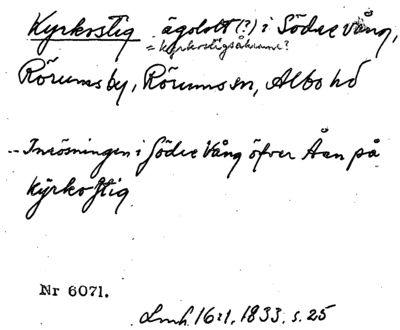 Kyrkostig ägolott (?) i Södre vång,
= kyrkostigsåkrarne?
Rörums by, Rörums sn, Albo hd
-- Inrösningen i Södre Vång öfver Åan på
Kyrkostig
Nr 6071.
Lmh. 16:1. 1833. s. 25